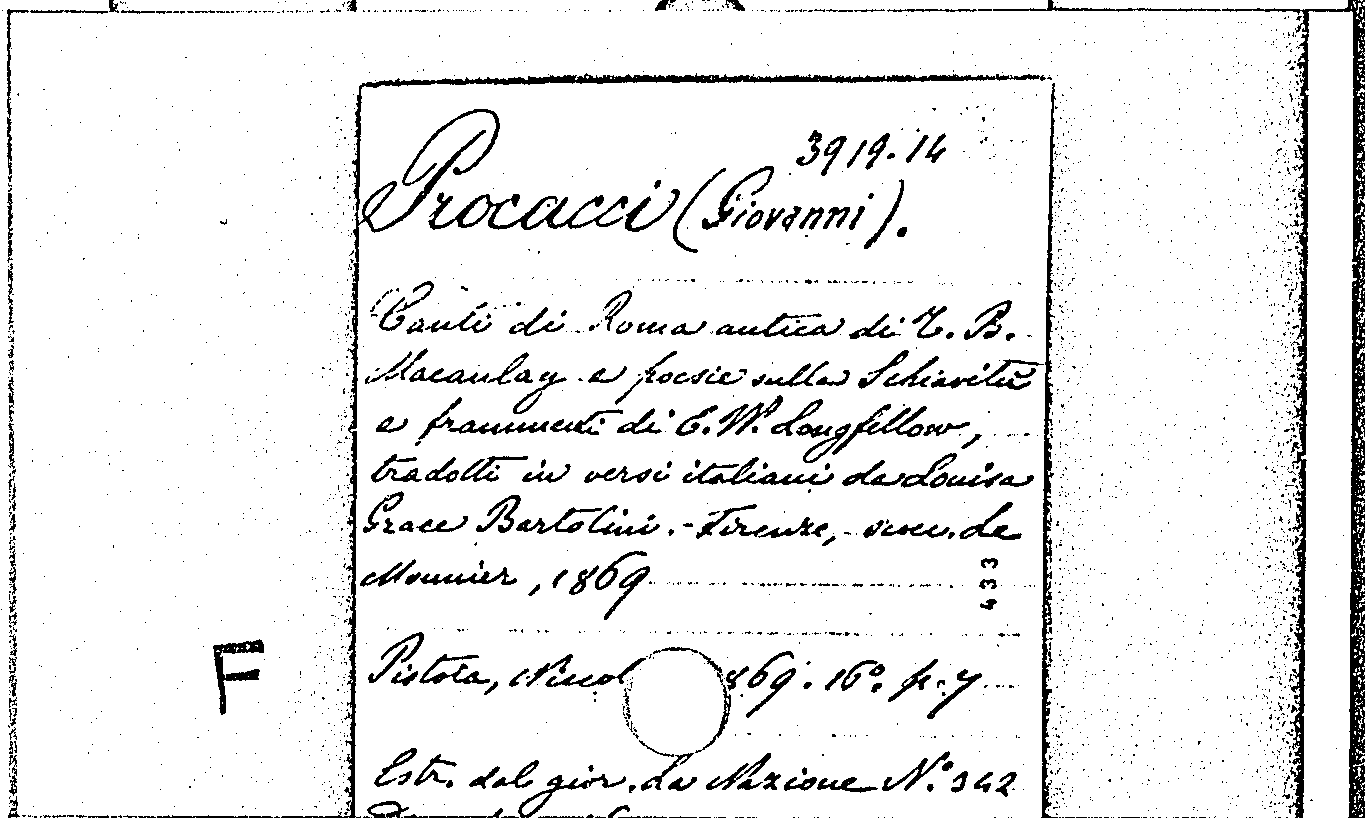 3919.14
Procacci (Giovanni).
Canti di Roma antica di T. B.
Macaulay e poesie sulla Schiavitù
e frammenti di E. W. Longfellow,
tradotti in versi italiani da Louisa
Grace Bartolini. - Firenze, succ. Le
Monnier, 1869
433
Pistoia, Niccol 869. 16°. p. 7
F
Estr. dal gior. La Nazione N.° 342